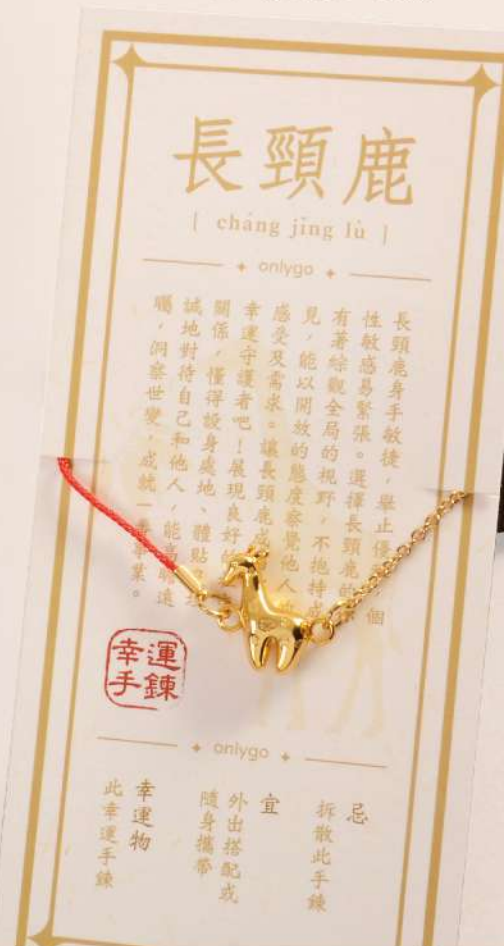 長頸鹿
[ cháng jǐng lù ]
onlygo
長頸鹿身手敏捷，舉止優，個
性敏感易緊張。選擇長頸鹿的
有著綜觀全局的視野，不抱持成
見，能以開放的態度察覺他人
感受及需求。讓長頸鹿成
幸運守護者吧！展現良好的
關係，懂得設身處地、體貼
誠地對待自己和他人，能高瞻遠
矚，洞察世變，成就一番事業。
幸運
手鍊
onlygo
忌
拆散此手鍊
宜
外出搭配或
隨身攜帶
幸運物
此幸運手鍊